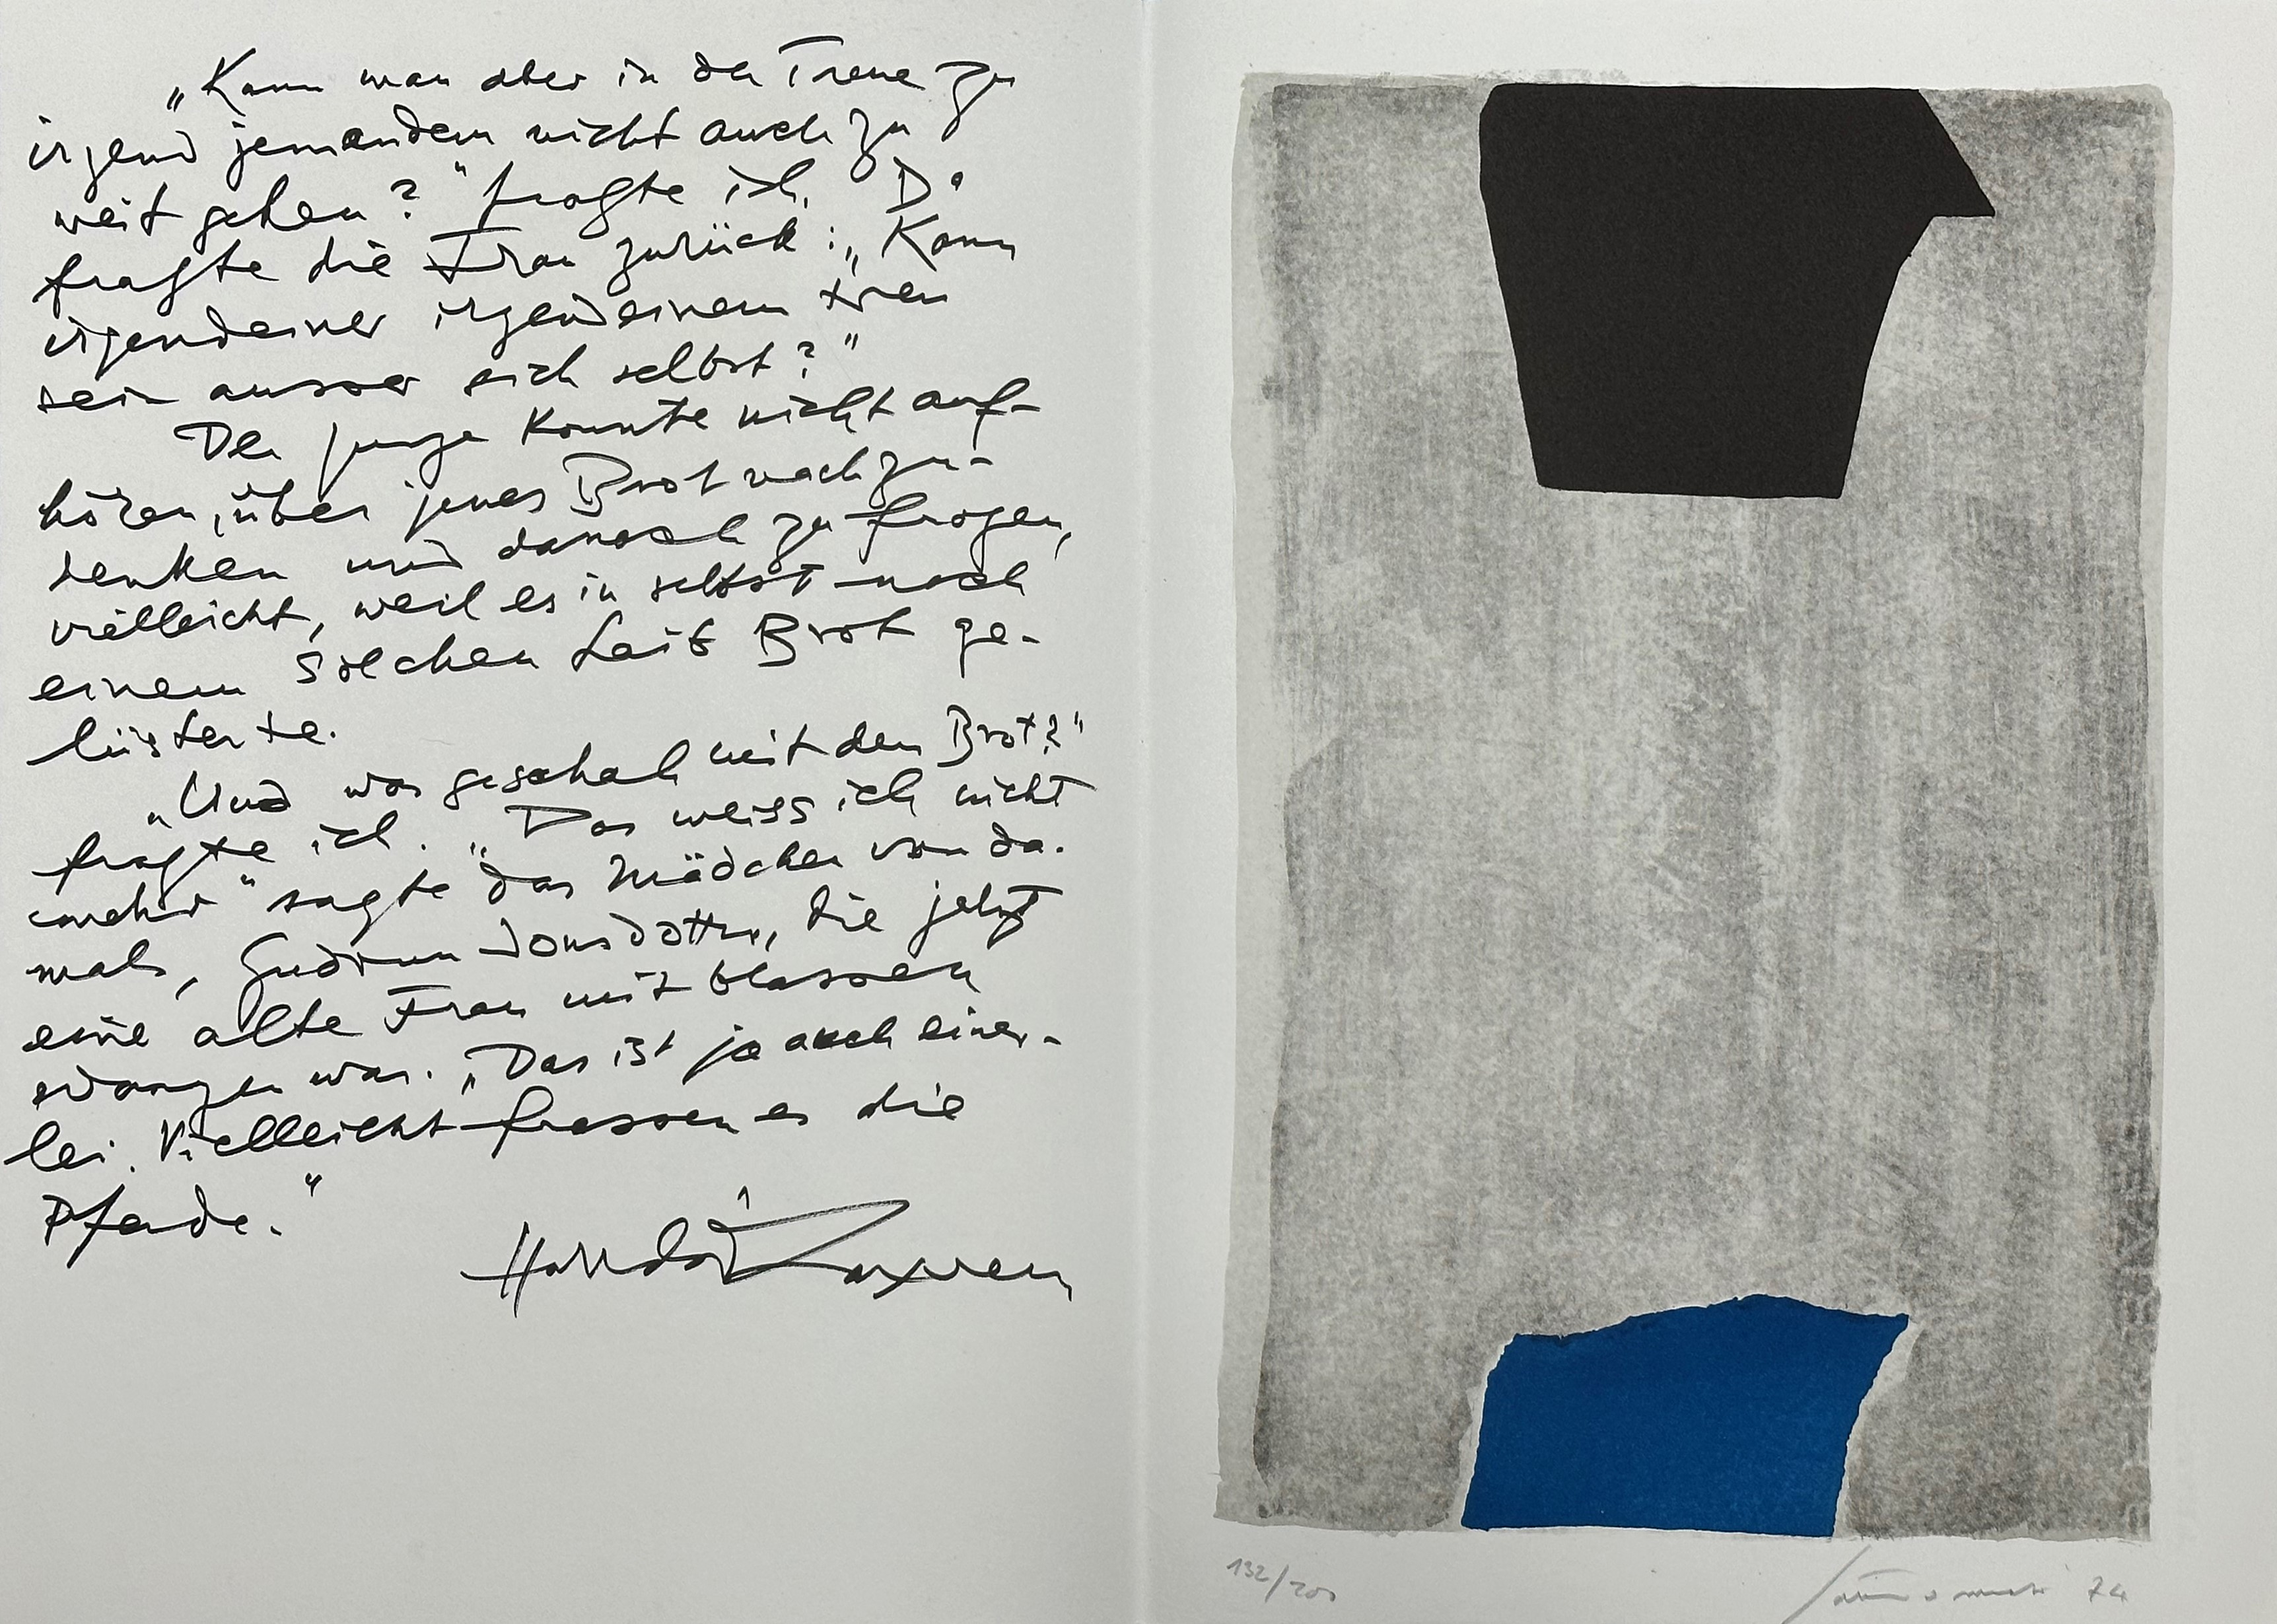 „Kann man aber in der Treue zu
irgend jemandem nicht auch zu
weit gehen?" fragte ich. Da
fragte die Frau zurück: „Kann
irgendeiner irgendeinem treu
sein ausser sich selbst?"
Der junge konnte nicht auf-
hören, über jenes Brot nachzu-
denken und danach zu fragen,
vielleicht, weil es in selbst noch
einem solchen Laib Brot ge-
lüsterte.
„Und was geschah mit dem Brot?"
fragte ich. „Das weiss ich nicht
mehr" sagte das Mädchen von da-
mals, Gudrun Jonsdottir, die jetzt
eine alte Frau mit blassen
Wangen war. „Das ist ja auch einer-
lei. Vielleicht frassen es die
Pferde."
Halldór Laxness
132/200
74